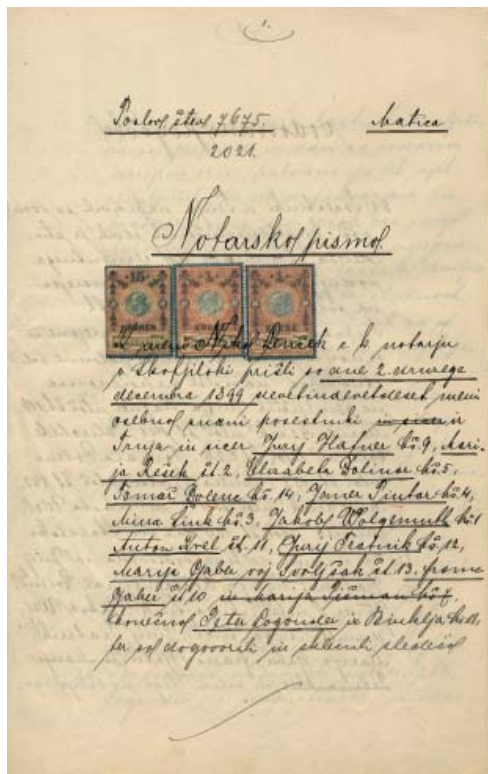 1.
Poslov. štev. 7675. Matica
2021.
Notarsko pismo.
15 1 1
Pred meno Niko Lenček c. k. notarju
v Škofjiloki prišli so dne 2. druzega
decembra 1899 devetindevetdeset meni
osebno znani posestniki in sicer iz
in sicer Jurij Hafner hš. 9, Mari-
ja Rešek št. 2, Elizabeta Dolinar hš. 5,
Tomaž Dolenc hš. 14, Janez Pintar hš. 4,
Mina Šink hš. 3, Jakob Wolgemuth hš. 1
Anton Krel št. 11, Jurij Tratnik hš. 12,
Marija Gaber roj. št. 13.
Gaber št. 10 in Marija hš. 7.
konečno Peter Logonder iz Binklja hš. 11,
ter so dogovorili in sklenili sledečo